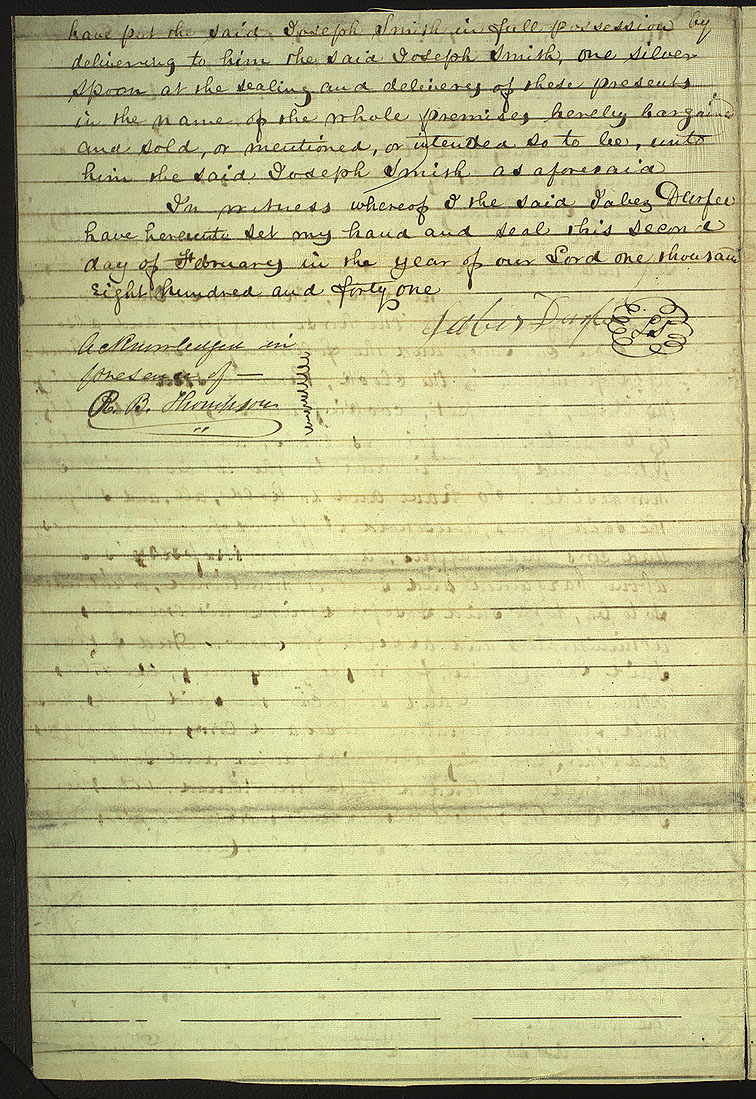 have put the said Joseph Smith in full possession by
delivering to him the said Joseph Smith, one silver
spoon at the sealing and delivery of these presents
in the name of the whole premises hereby bargained
and sold, or mentioned, or intended so to be, unto
him the said Joseph Smith as aforesaid
In witness whereof I the said Jabez Durfee
have hereunto set my hand and seal this second
day of February in the year of our Lord one thousand
Eight hundred and forty one
Jabez Durfee L.S.
Acknowledged in
presence of —
R. B. Thompson